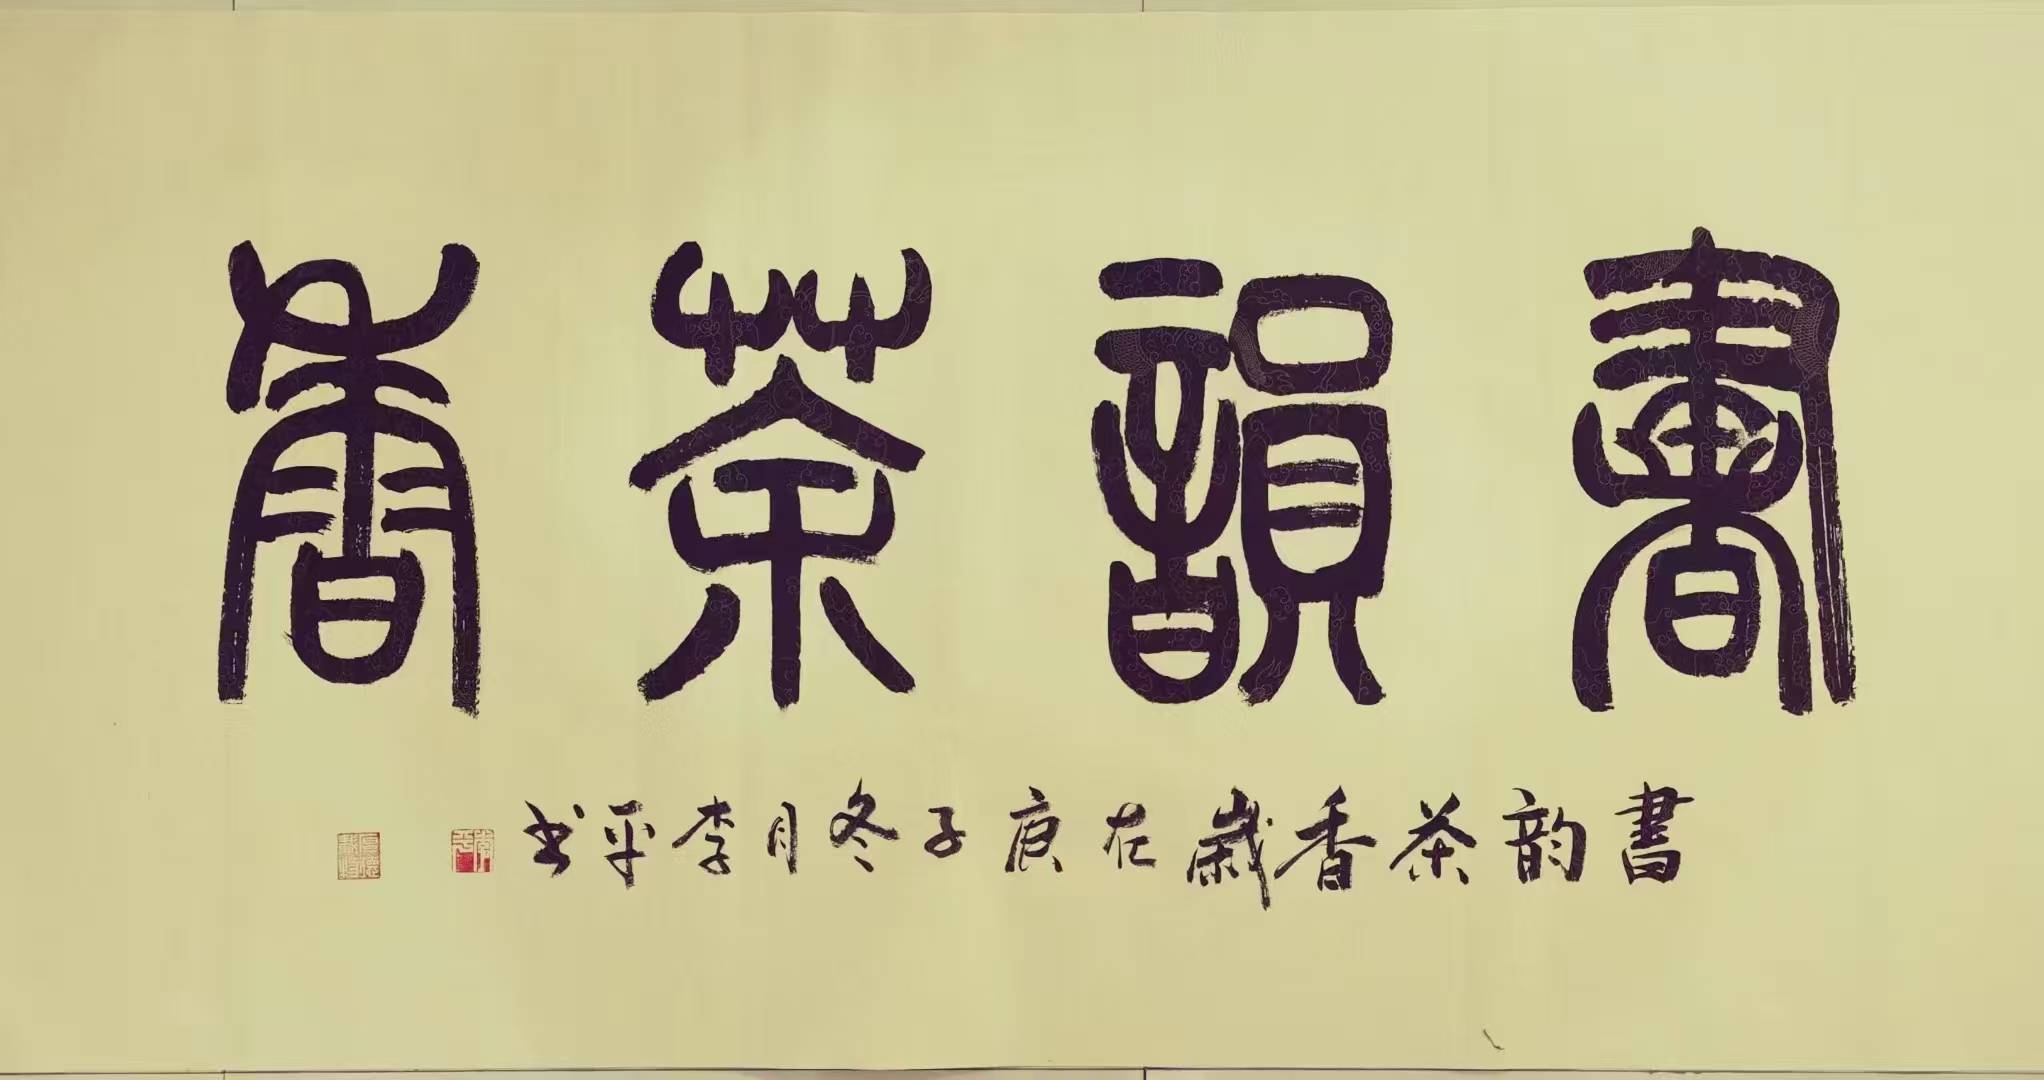 書韻茶香
書韵茶香歲在庚子冬月李平书